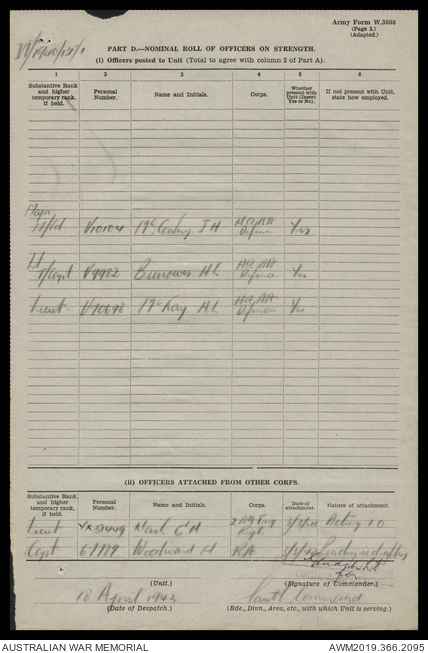 Army Form W.3008
(Page 2.)
(Adapted.)
PART D.—NOMINAL ROLL OF OFFICERS ON STRENGTH.
(i) Officers posted to Unit (Total to agree with column 2 of Part A).
1 2 3 4 5 6
Substantive Rank and higher temporary rank, if held. Personal Number. Name and Initials. Corps. Whether present with Unit (Insert Yes or No). If not present with Unit, state how employed.
Major
V10104 J H HQ AA Yes
Lt
T/Capt V7982 Burrows H L HQ AA Yes
Lieut V70698 McKay H L HQ AA Yes
(ii) OFFICERS ATTACHED FROM OTHER CORPS.
Substantive Rank and higher temporary rank, if held. Personal Number. Name and Initials. Corps. Date of attachment. Nature of attachment.
Lieut C H Acting I O
Capt Woodward H RA
(Unit.) (Signature of Commander.)
18 April 1942 Command
(Date of Despatch.) (Bde., Divn., Area, etc., with which Unit is serving.)
AUSTRALIAN WAR MEMORIAL AWM2019.366.2095